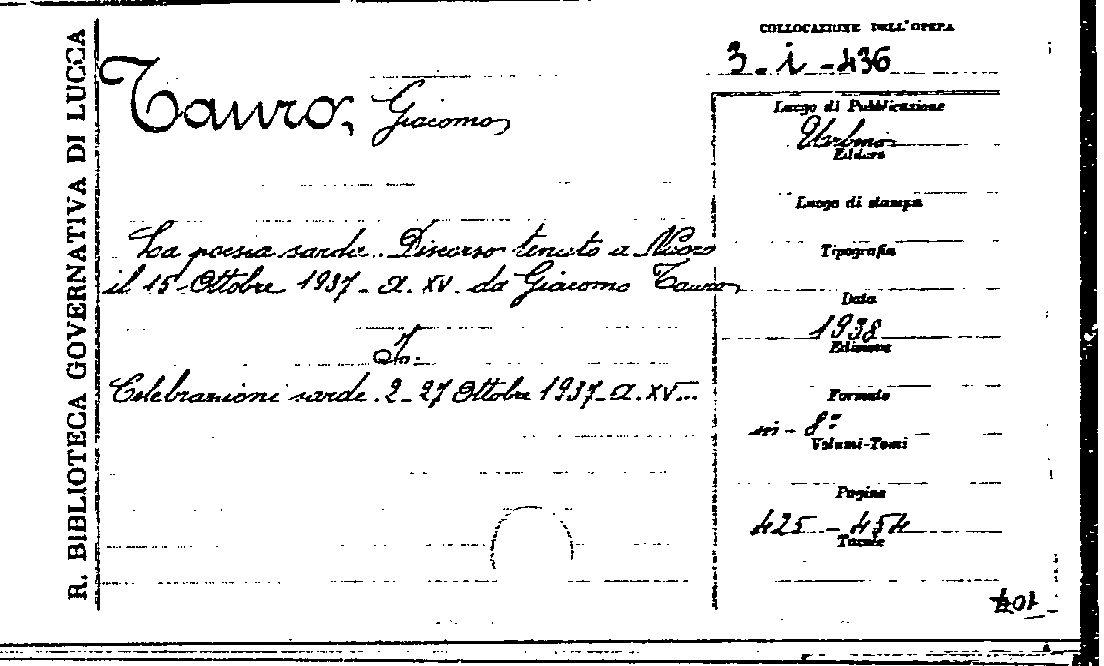 R. BIBLIOTECA GOVERNATIVA DI LUCCA
COLLOCAZIONE DELL'OPERA
3-i-436
Tauro, Giacomo
La poesia sarda. Discorso tenuto a Nuoro
il 15 Ottobre 1937 - a. XV. da Giacomo Tauro
In:
Celebrazioni sarde. 2-27 Ottobre 1937-a. XV...
Luogo di Pubblicazione
Urbino
Editore
Luogo di stampa
Tipografia
Data
1938
Edizione
Formato
in-8º
Volumi-Tomi
Pagine
425-454
Tavole